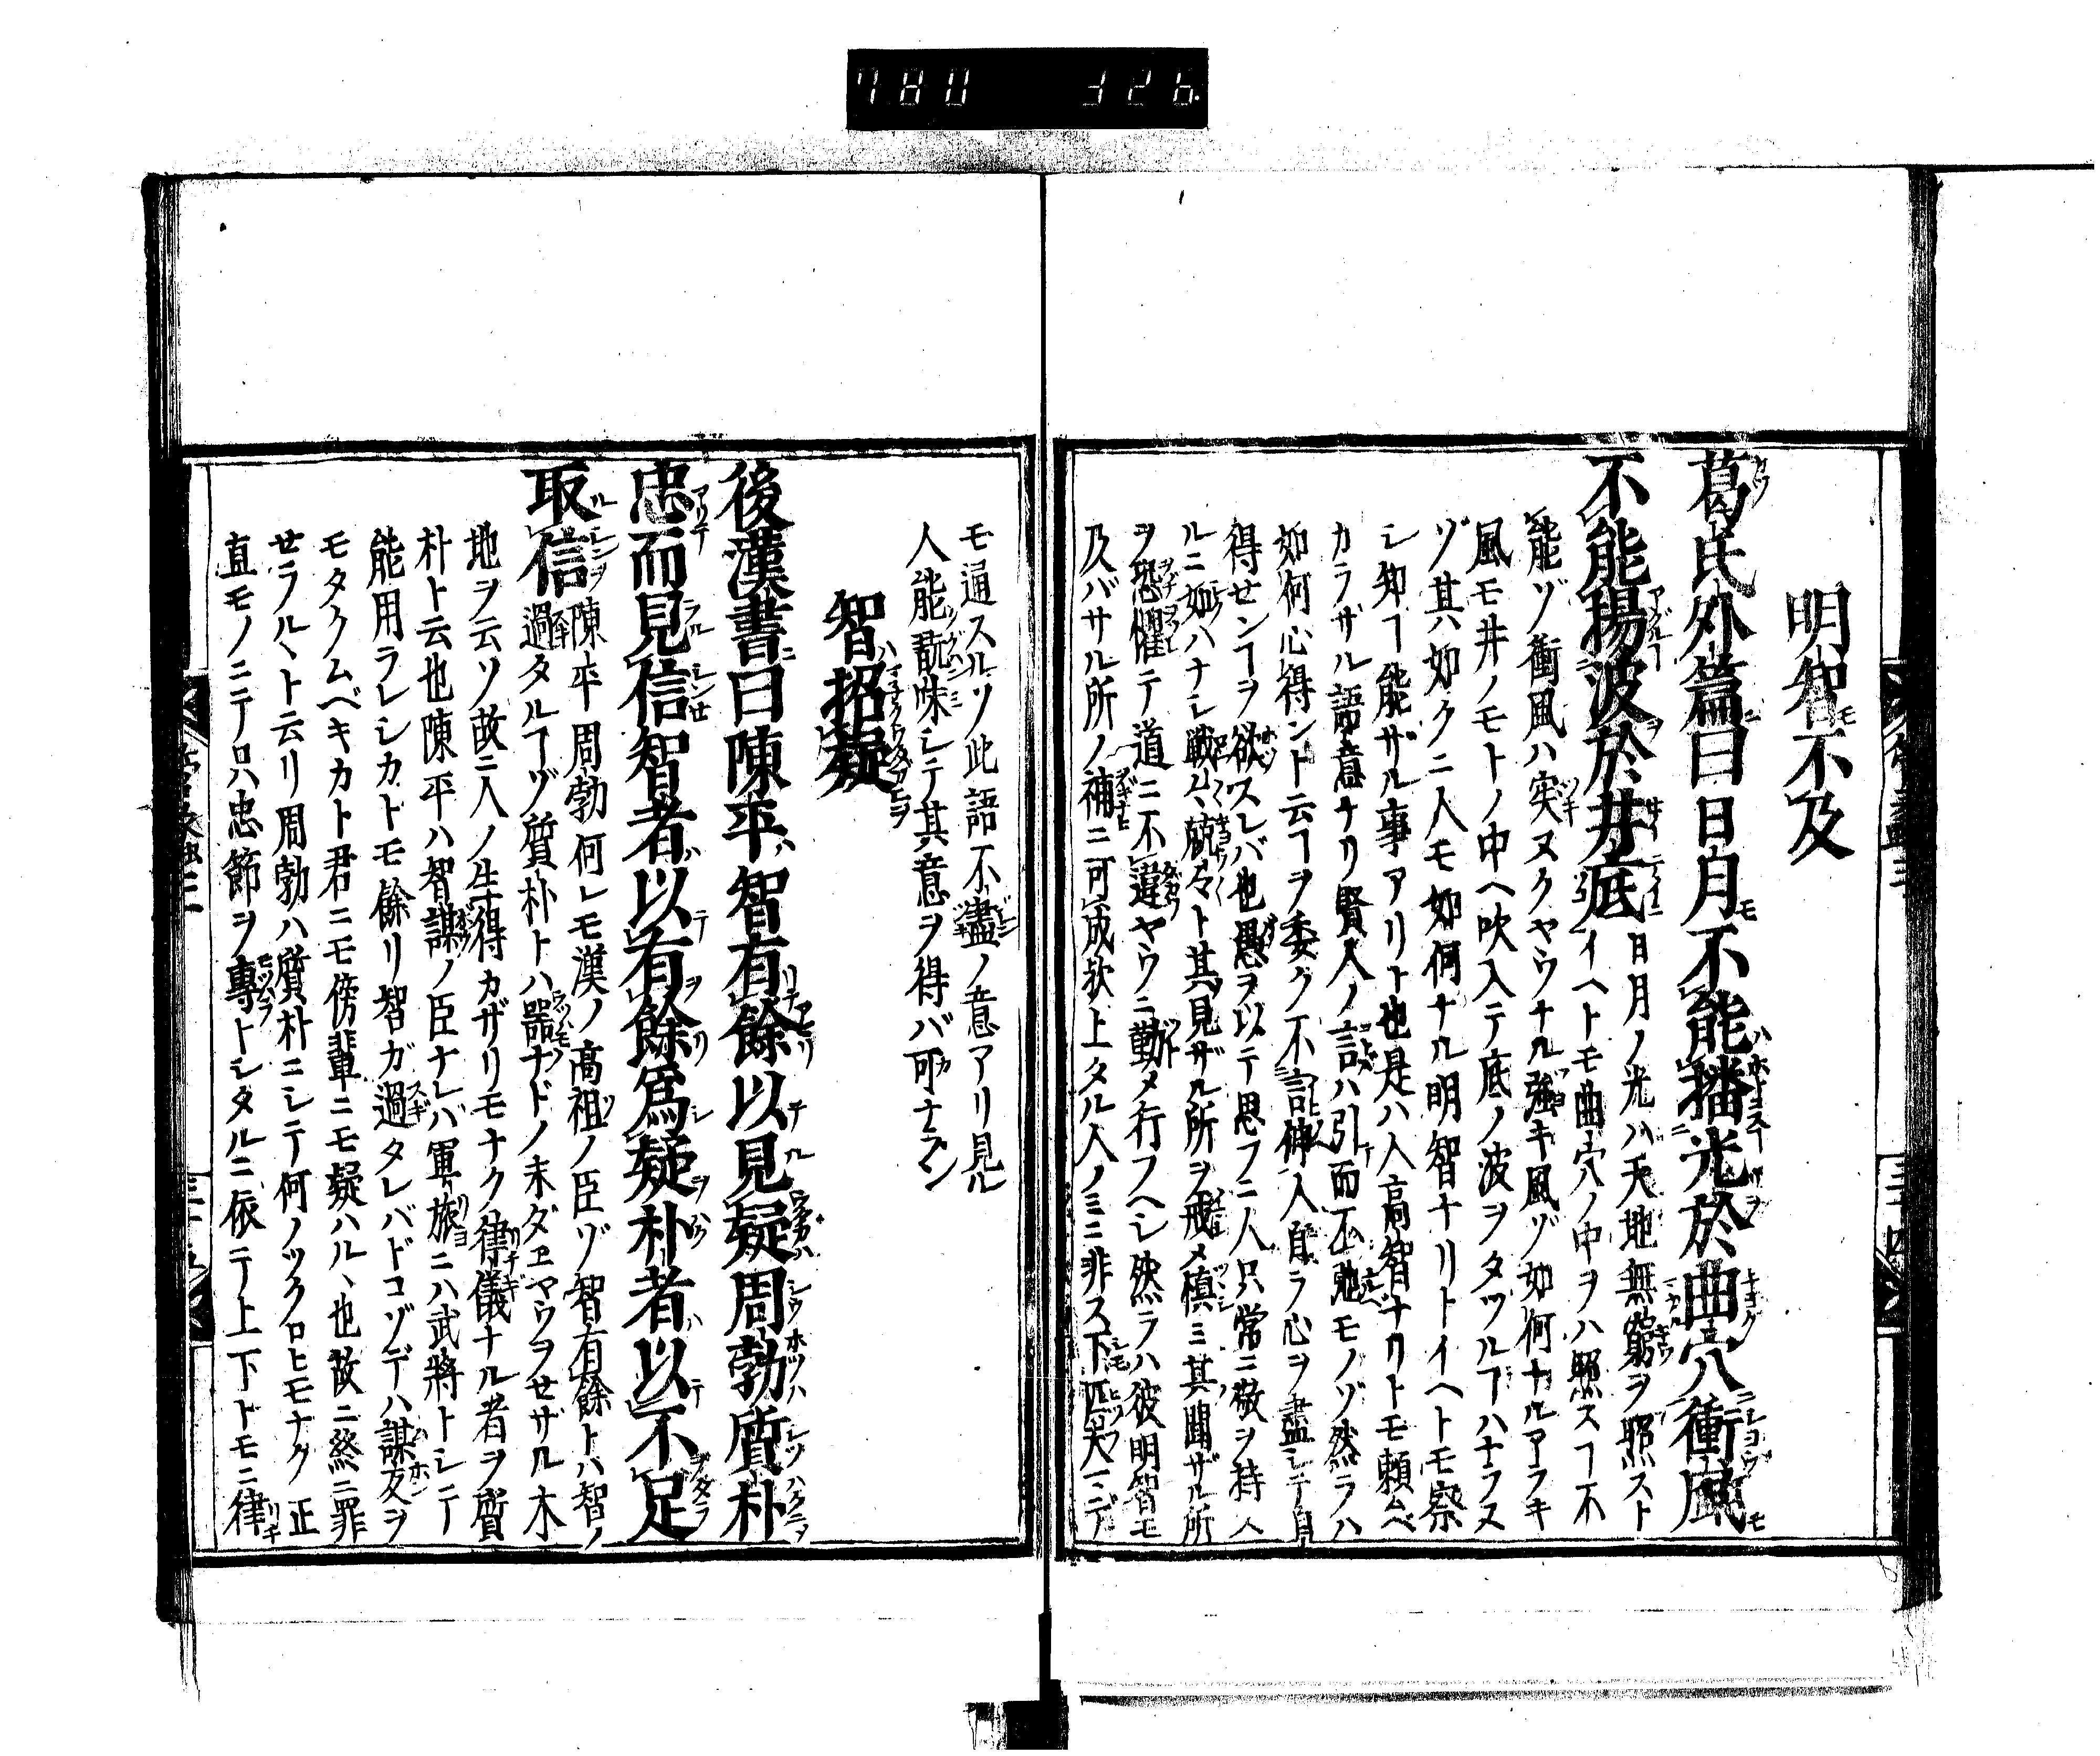 明智モ不及
葛氏外篇ニ曰日月モ不能播光於曲穴衝風モ
不能揚波於井底日月ノ光ハ天地無窮ヲ照スト
イヘトモ曲穴ノ中ヲハ照スヿ不
能ゾ衝風ハ突ヌクヤウナル強キ風ゾ如何ナルアラキ
風モ井ノモトノ中ヘ吹入テ底ノ波ヲタツルヿハナラヌ
ゾ其ハ如クニ人モ如何ナル明智ナリトイヘトモ察
シ知ヿ能ザル事アリト也是ハ人高智ナリトモ頼ムベ
カラザル語意ナリ賢人ノ言ハ引而不弛モノゾ然ラハ
如何心得ント云ヿヲ委ク不言伸人自ラ心ヲ盡シテ自
得センヿヲ欲スレバ也愚ヲ以テ思フニ人只常ニ敬ヲ持
ルニ如ハナシ戦々兢々ト其見ザル所ヲ戒メ慎ミ其聞ザル所
ヲ恐懼テ道ニ不違ヤウニ勤メ行フヘシ然ラハ彼明智モ
及バサル所ノ補ニ可成歟上タル人ノミニ非ス下匹夫マデ
モ通スルソ此語不盡ノ意アリ見ル
人能翫味シテ其意ヲ得バ可ナラン
智招疑
後漢書ニ曰陳平智有餘以見疑周勃質朴
忠而見信智者以有餘爲疑朴者以不足
取信陳平周勃何レモ漢ノ高祖ノ臣ゾ智有餘トハ智ノ
過タルヿヅ質朴トハ器ナドノ未ダヱヤウヲセザル木
地ヲ云ソ故ニ人ノ生得カザリモナク律儀ナル者ヲ質
朴ト云也陳平ハ智謀ノ臣ナレバ軍旅ニハ武將トシテ
能用ラレシカトモ餘リ智ガ過タレバドコゾデハ謀反ヲ
モタクムベキカト君ニモ傍輩ニモ疑ハル丶也故ニ終ニ罪
セラル丶ト云リ周勃ハ質朴ニシテ何ノツクロヒモナク正
直モノニテ只忠節ヲ專トシタルニ依テ上下トモニ律